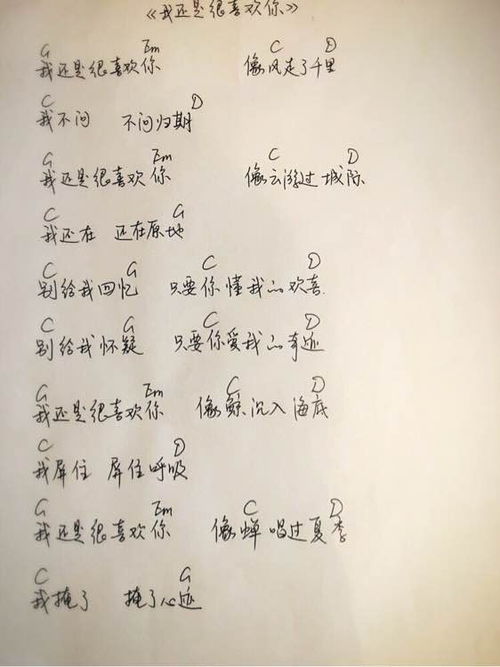 《我还是很喜欢你》
G Em C D
我还是很喜欢你 像风走了千里
C D
我不问 不问归期
G Em C D
我还是很喜欢你 像云游过城际
C G
我还在 还在原地
C G C D
别给我回忆 只要你懂我的欢喜
C G C D
别给我怀疑 只要你爱我的奇迹
G Em C D
我还是很喜欢你 像鲸沉入海底
C D
我屏住 屏住呼吸
G Em C D
我还是很喜欢你 像蝉唱过夏季
C G
我掩了 掩了心迹